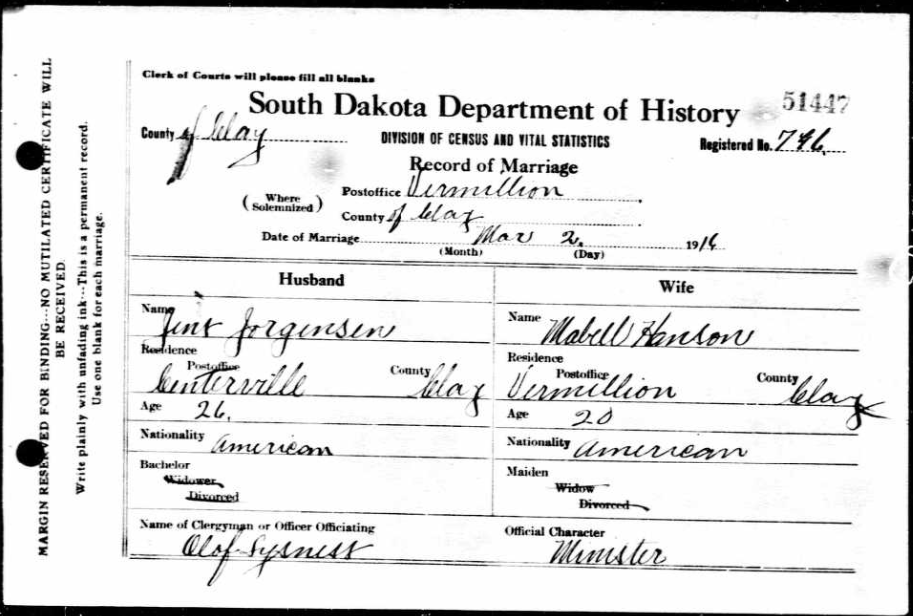 Clerk of Courts will please fill all blanks
South Dakota Department of History 51447
County of Clay DIVISION OF CENSUS AND VITAL STATISTICS Registered No. 746
Record of Marriage
(Where Solemnized) Postoffice Vermillion
County of Clay
Date of Marriage Mar 2. 1916
(Month) (Day)
Husband Wife
Name Jorgensen Name Mabell Hanson
Residence Residence
Postoffice County Postoffice County
Centerville Clay Vermillion Clay
Age 26. Age 20
Nationality American Nationality American
Bachelor Maiden
Widower Widow
Divorced Divorced
Name of Clergyman or Officer Officiating Official Character
Olof Lysness Minister
MARGIN RESERVED FOR BINDING---NO MUTILATED CERTIFICATE WILL
BE RECEIVED.
Write plainly with unfading ink---This is a permanent record.
Use one blank for each marriage.